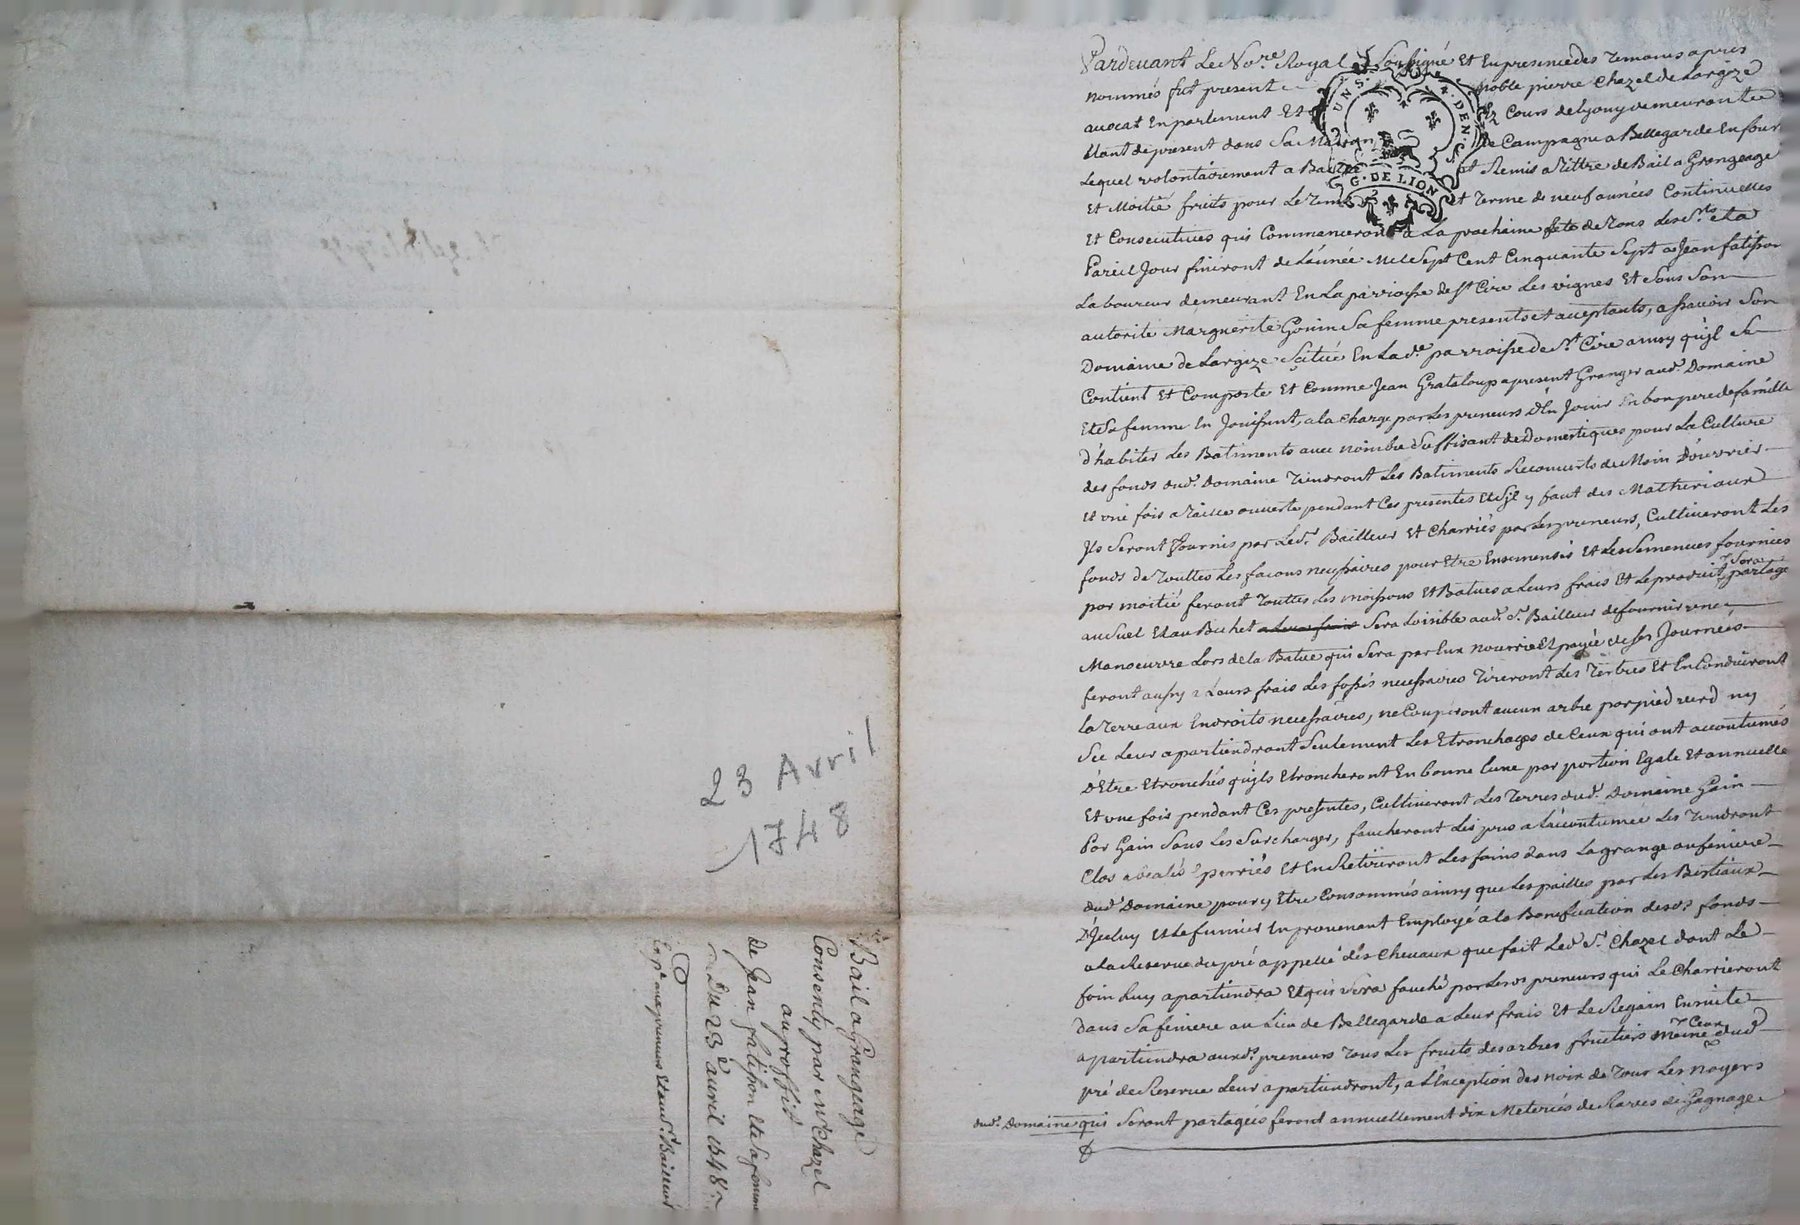 Pardevant Le No.re Royal Soussigné Et En presence des Temoins apres
nommés fut present noble pierre Chazel de Largize
avocat En parlement Et Cours de Lyon y demeurant
Etant de present dans Sa Maison de Campagne a Bellegarde En four
Lequel volontairement a Baillé et Remis a Tittre de Bail a Grangeage
Et Moitié fruits pour Le Tems et Terme de neuf années Continuelles
Et Consecutives qui Commanceront a La prochaine fete de Tous Les S.nts et a
Pareil Jour finiront de L'année Mil Sept Cent Cinquante Sept a Jean fatisson
Laboureur demeurant En La parroisse de S.t Cire Les vignes Et Sous Son
autorité Marguerite Gonin Sa femme presents et acceptants, assavoir Son
Domaine de Largize Scitué En La d.te parroisse de S.t Cire ainsy qu'il Se
Contient Et Comporte Et Comme Jean Grataloup apresent Granger aud. Domaine
Et Sa femme En Jouissent, a la charge par Les preneurs d'En Jouir En bon pere de famille
d'habiter Les Batiments avec nombre Suffisant de Domestiques pour La Culture
des fonds dud. Domaine Tiendront Les Batiments Recouverts de Main D'ouvrier
Et une fois a Taille ouverte pendant Ces presentes Et S'il y faut des Matheriaux
Ils Seront fournis par Led. Bailleur Et Charriés par Les preneurs, Cultiveront Les
fonds de Touttes Les facons necessaires pour Etre Ensemensés Et Les Semences fournies
par moitié feront Touttes Les moissons Et Batues a Leurs frais Et Le produit Sera partagé
au Suel Et au Bichet a Leurs frais Sera Loisible aud. S.r Bailleur de fournir une
Manoeuvre Lors de la Batue qui Sera par Eux nourrie Et payée de Ses Journées
feront aussy a Leurs frais Les fossés necessaires Tireront Les Tertres Et En Conduiront
la Terre aux Endroits necessaires, ne Couperont aucun arbre par pied verd ny
Sec Leur apartiendront Seulement Les Etronchages de Ceux qui ont accoutumés
D'Etre Etronchés qu'ils Etroncheront En bonne Lune par portion Egale Et annuelle
Et une fois pendant Ces presentes, Cultiveront Les Terres dud. Domaine Gain
Par Gain Sans Les Surcharger, faucheront Les prés a L'acoutumée Les Tiendront
Clos Et En Retireront Les foins dans La grange ou feniere
dud. Domaine pour y Etre Consommés ainsy que Les pailles par Les Bestiaux
D'Jceluy Et Le fumier En provenant Employé a la Bonification desd. fonds
a la Reserve du pré appellé des Chevaux que fait Led. S.r Chazel dont Le
foin Luy apartiendra Et qui Sera fauché par Les preneurs qui Le Charrieront
Dans Sa feniere au Lieu de Bellegarde a Leur frais Et Le Regain Ensuite
apartiendra auxd. preneurs Tous Les fruits des arbres fruitiers meme Ceux dud.
pré de Reserve Leur apartiendront, a L'Exception des noix de Tous Les noyers
dud. Domaine qui Seront partagées feront annuellement dix Meterées de Raves de Gagnage
UNS. DEN.
G. DE LION
23 Avril
1748
Bail a Grangeage
Consenty par M.r Chazel
au proffit
de Jean fatisson Et Sa femme
Du 23 avril 1748
Exp.é aux preneurs Et aud. S.r Bailleur